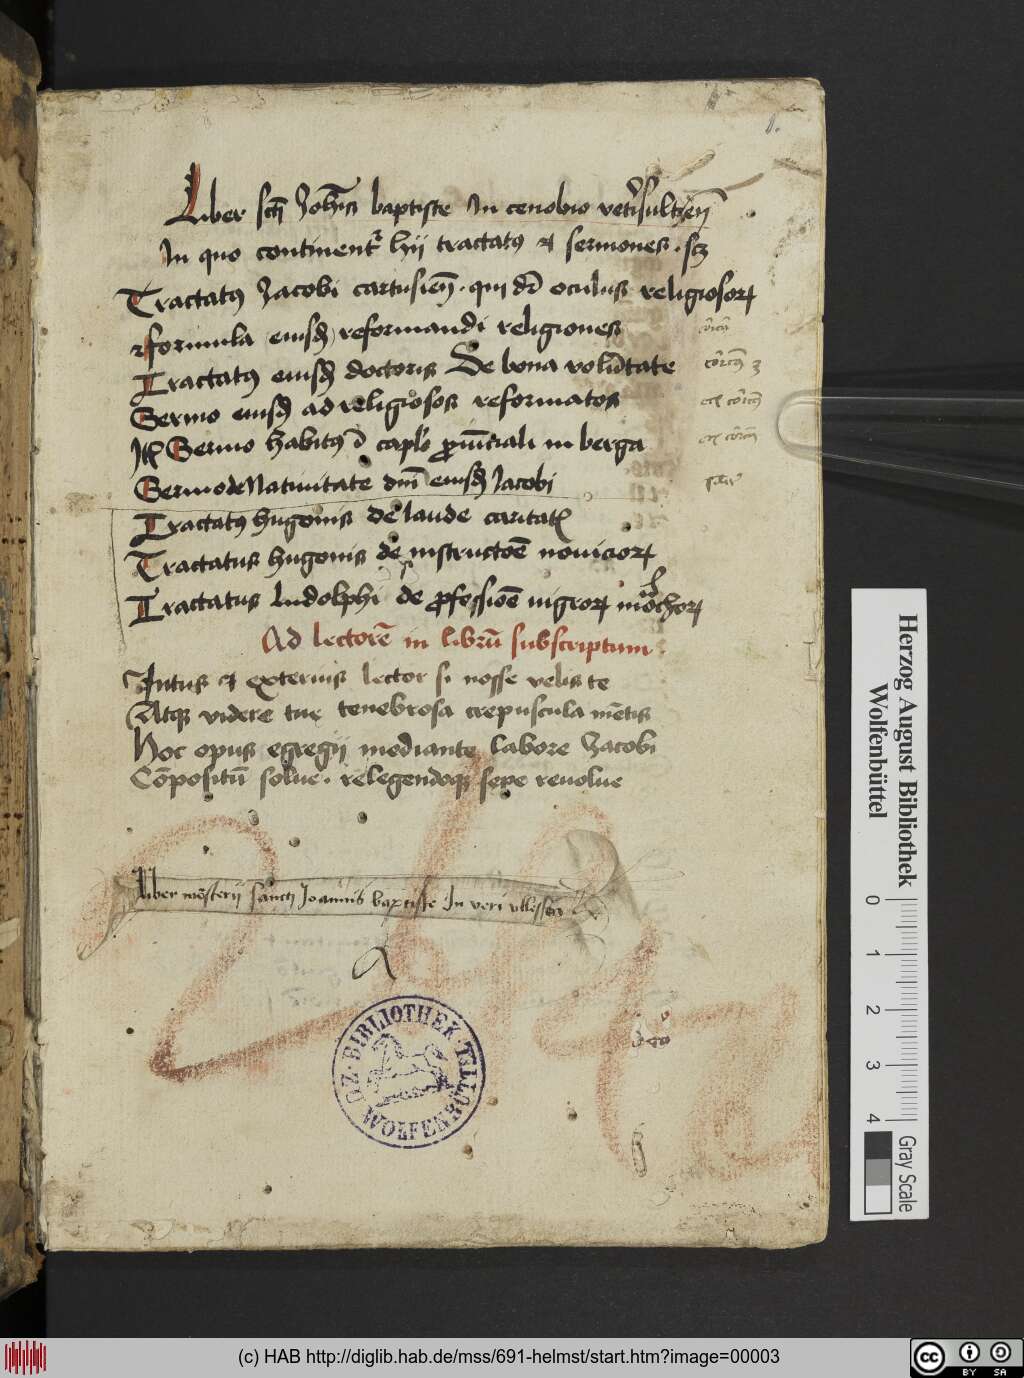 1.
Liber scti Johanis baptiste In cenobio vetisultzen
In quo continent hii tractatus et sermones. scz
Tractatus Jacobi cartusien. qui dr oculus religiosor
et formula eiusd reformandi religiones
Tractatus eiusd doctoris De bona volutate
Sermo eiusd ad religiosos reformatos
Ite Sermo habitus i caplo prouinciali in berga
Sermo de Natiuitate dni eiusd Jacobi
Tractatus hugonis de laude caritatis
Tractatus hugonis de instructoe nouicior
Tractatus ludolphi de professioe nigror mochor
Ad lectore in libru subscriptum
Intus et exterius lector si nosse velis te
Atque videre tue tenebrosa crepuscula metis
Hoc opus egregij mediante labore Jacobi
Copositu solue. relegendoque sepe reuolue
Liber mosterij sancti Joannis baptiste In veri
DZ. BIBLIOTHEK. WOLFENBÜTTEL
Herzog August Bibliothek
Wolfenbüttel
0 1 2 3 4
Gray Scale
(c) HAB http://diglib.hab.de/mss/691-helmst/start.htm?image=00003
cc BY SA